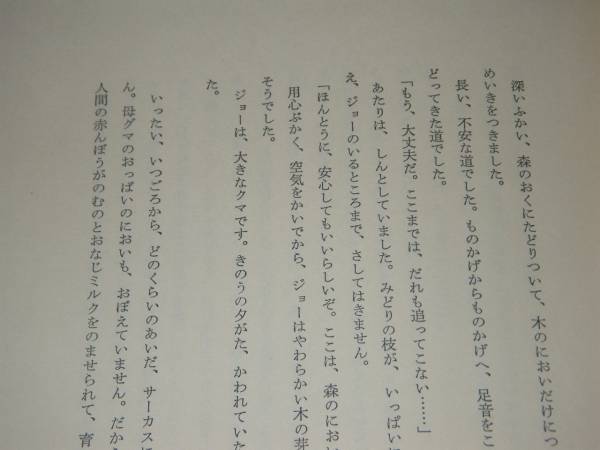 深いふかい、森のおくにたどりついて、木のにおいだけにつ
めいきをつきました。
長い、不安な道でした。ものかげからものかげへ、足音をこ
どってきた道でした。
「もう、大丈夫だ。ここまでは、だれも追ってこない……」
あたりは、しんとしていました。みどりの枝が、いっぱいに
え、ジョーのいるところまで、さしてはきません。
「ほんとうに、安心してもいいらしいぞ。ここは、森のにおい
用心ぶかく、空気をかいでから、ジョーはやわらかい木の芽
そうでした。
ジョーは、大きなクマです。きのうの夕がた、かわれていた
た。
いったい、いつごろから、どのくらいのあいだ、サーカスに
ん。母グマのおっぱいのにおいも、おぼえていません。だから
人間の赤んぼうがのむのとおなじミルクをのませられて、育